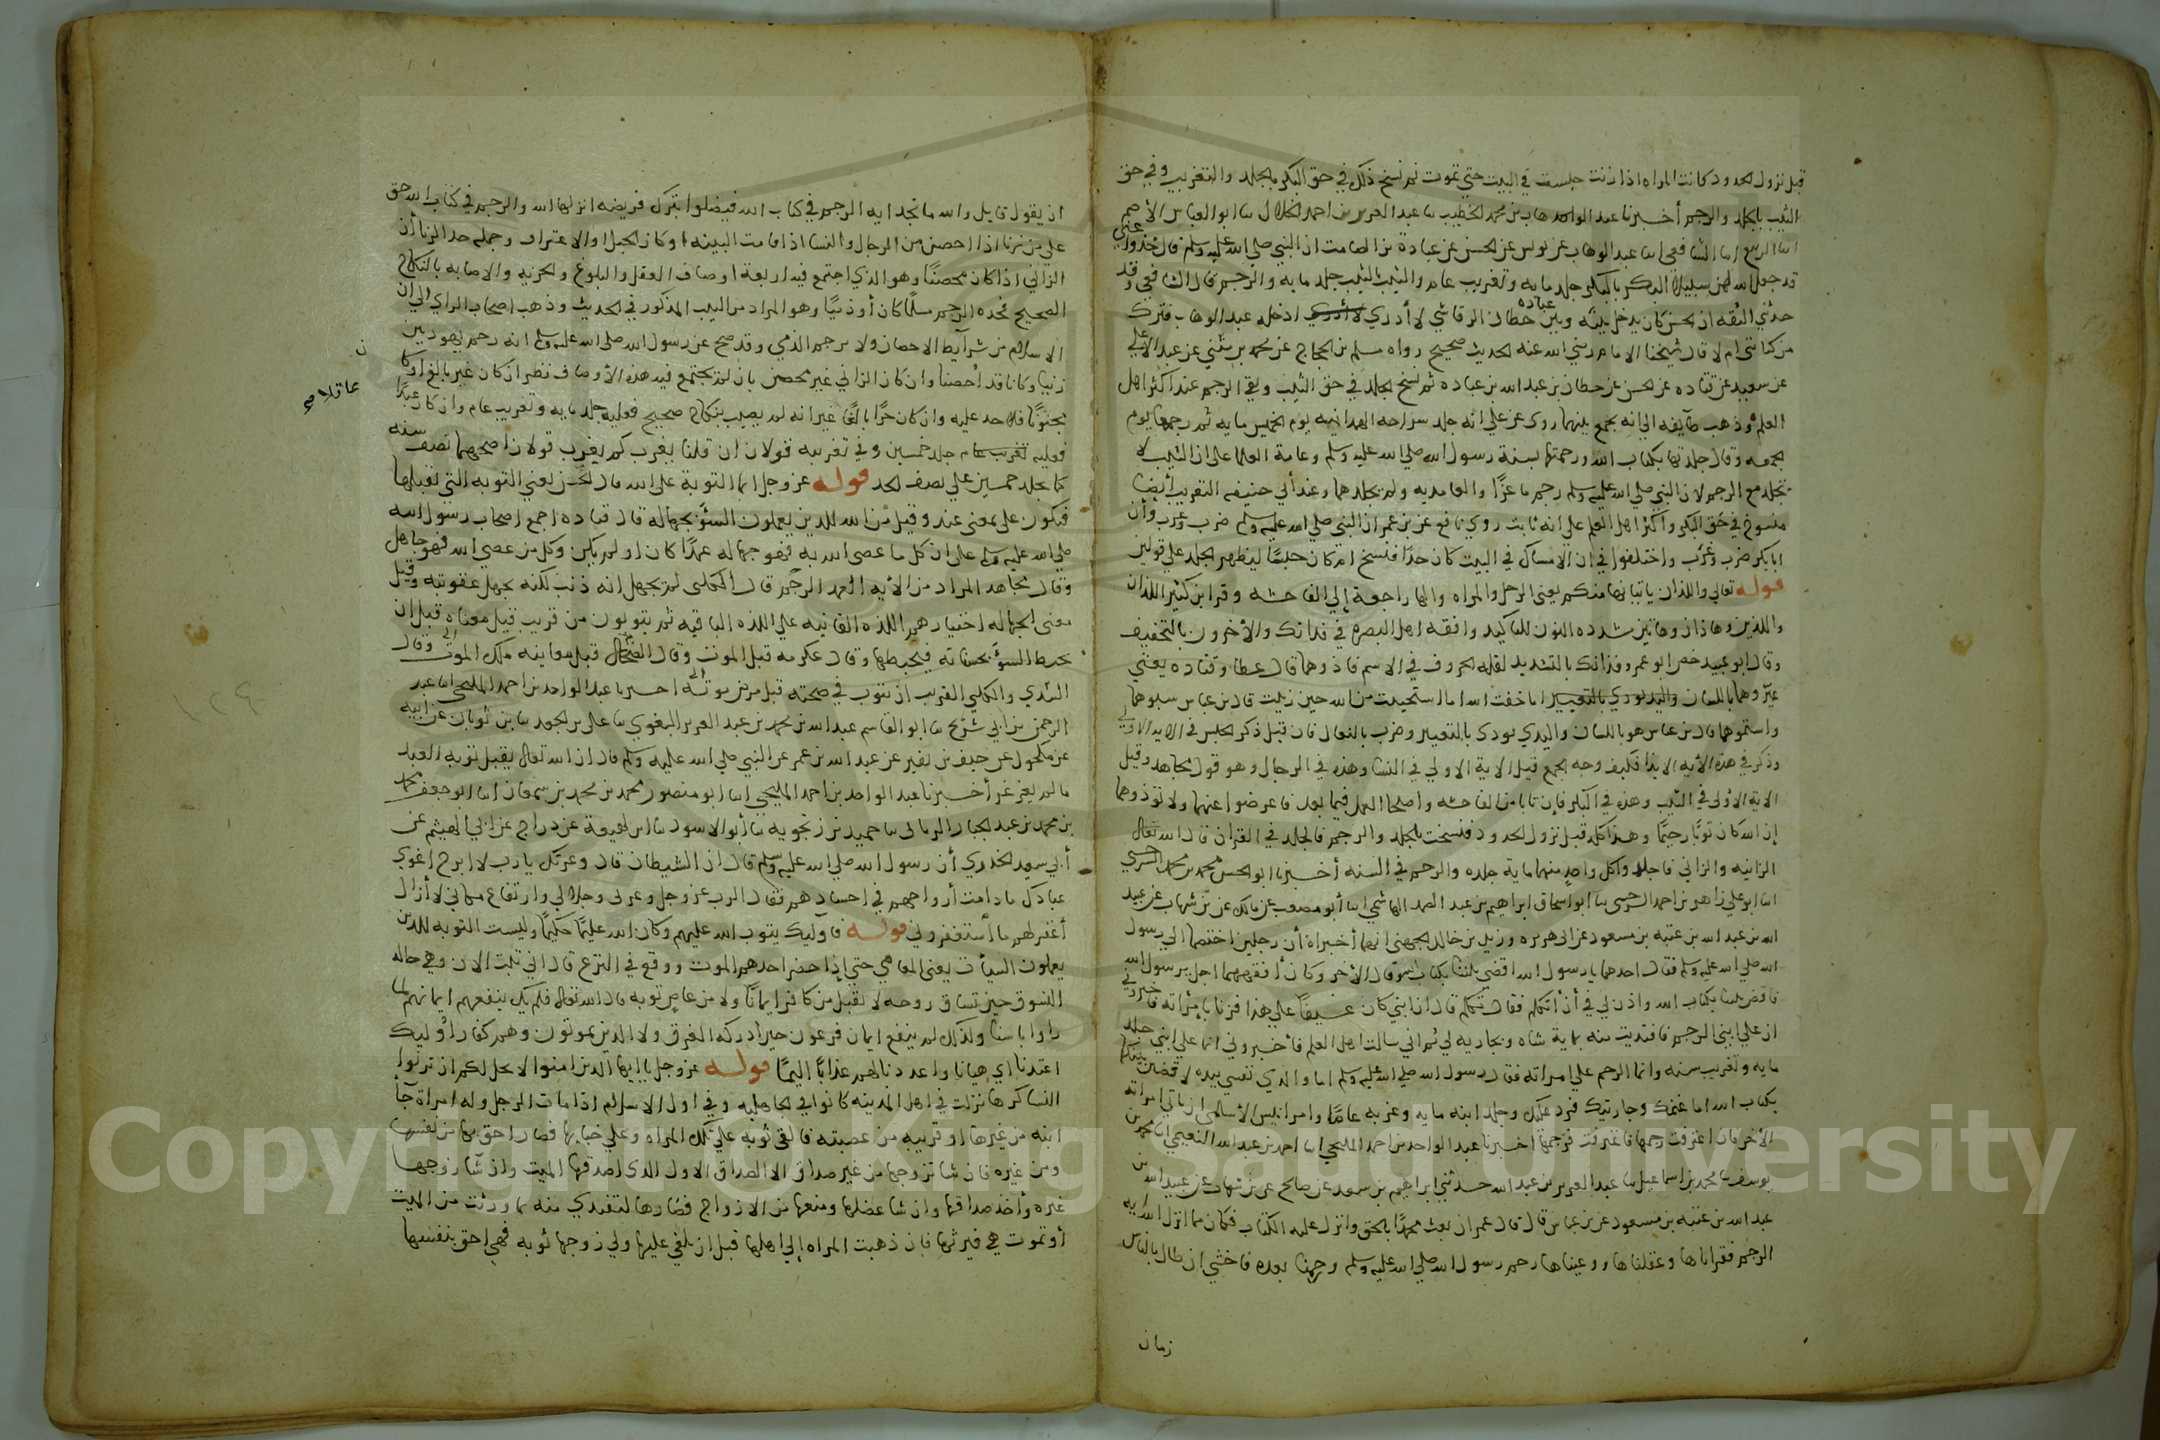 قبل نزول الحدود كانت المراه اذا زنت حبست في البيت حتي تموت ثم نسخ ذلك في حق البكر بالجلد والتغريب وفي حق
الثيب بالجلد والرجم أخبرنا عبد الواحد بن محمد الخطيب عبد العزيز بن احمد الخلال ابو العباس الأصم
انا الربيع انا الشافعي انا عبد الوهاب عن يونس عن الحسن عن عبادة بن الصامت ان النبي صلي الله عليه وسلم قال خذوا عني
قد جعل الله لهن سبيلا البكر بالبكر جلد مايه وتغريب عام والثيب بالثيب جلد مايه والرجم قال الشافعي وقد
حدثني الثقه ان الحسن كان يدخل بينه وبين عباده حطان الرقاشي لا أدري ادخله عبد الوهاب فترك
من كتابي ام لا قال شيخنا الامام رضي الله عنه الحديث صحيح رواه مسلم بن الحجاج عن محمد بن مثني عن عبد الأعلي
عن سعيد عن قتاده عن الحسن عن حطان بن عبد الله عن عباده ثم نسخ الجلد في حق الثيب وبقي الرجم عند أكثر اهل
العلم وذهب طآيفه الي انه يجمع بينهما روي عن علي انه جلد سراحه الهمدانيه يوم الخميس مايه ثم رجمها يوم
الجمعه وقال جلدتها بكتاب الله ورجمتها بسنة رسول الله صلي الله عليه وسلم وعامة العلما علي ان الثيب لا
يجلد مع الرجم لان النبي صلي الله عليه وسلم رجم ماعزا والغامديه ولم يجلدهما وعند أبي حنيفه التغريب أيضا
منسوخ في حق البكر وأكثر اهل العلم علي انه ثابت روي نافع عن بن عمر ان النبي صلي الله عليه وسلم ضرب وغرب وأن
ابا بكر ضرب وغرب واختلفوا في ان الامساك في البيت كان حدا فنسخ ام كان حبسا ليظهر الحد علي قولين
قوله تعالي واللذان ياتيانها منكم يعني الرجل والمراه والها راجعة إلي الفاحشه وقرا ابن كثير اللذان
واللذين وهاذان وهاتين مشدده النون للتاكيد وافقه اهل البصره في فذانك والأخرون بالتخفيف
وقال ابو عبيد خص ابو عمرو فذانك بالتشديد لقله الحروف في الاسم فاذوهما قال عطا وقتاده يعني
عيروهما باللسان اما خفت الله اما استحييت من الله حين زنيت قال بن عباس سبوهما
واشتموهما قال بن عباس هو باللسان واليد يوذي بالتعيير وضرب بالنعال فان قيل ذكر الحبس في الايه الاولي
وذكر في هذه الأيه الايذا فكيف وجه الجمع قيل الاية الاولي في النسا وهذه في الرجال وهو قول مجاهد وقيل
الاية الأولي في الثيب وهذه في البكر فإن تابا من الفاحشه واصلحا العمل فيما بعد فاعرضوا عنهما ولا توذوهما
إن الله كان توابا رحيما وهذا كله قبل نزول الحدود فنسخت بالجلد والرجم فالجلد في القران قال الله تعالي
الزانيه والزاني فاجلدوا كل واحد منهما ماية جلده والرجم في السنه أخبرنا ابو الحسن محمد بن محمد السرخسي
انا ابو علي زاهر بن احمد السرخسي انا ابو اسحاق ابراهيم بن عبد الصمد الهاشمي انا أبو مصعب عن مالك عن بن شهاب عن عبيد
الله بن عبد الله بن عتبه بن مسعود عن ابي هريره وزيد بن خالد الجهني انهما أخبراه أن رجلين اختصما الي رسول
الله صلي الله عليه وسلم فقال احدهما يا رسول الله اقض بيننا بكتاب الله وقال الأخر وكان أفقههما اجل يرسول الله
فاقض بيننا بكتاب الله واذن لي في أن أتكلم فقال تكلم قال ان ابني كان عسيفا علي هذا فزنا بامراته فاخبروني
ان علي ابني الرجم فافتديت منه بماية شاه وبجاريه لي ثم اني سالت اهل العلم فأخبروني انما علي ابني جلد
مايه وتغريب سنه وانما الرجم علي امراته فقال رسول الله صلي الله عليه وسلم اما والذي نفسي بيده لاقضين بينكما
بكتاب الله اما غنمك وجاريتك فرد عليك وجلد ابنه مايه وغربه عاما وامر انيس الأسلمي ان ياتي امراته
الأخر فان اعترفت رجمها فاعترفت فرجمها أخبرنا عبد الواحد بن احمد المليحي انا احمد بن عبد الله النعيمي انا محمد بن
يوسف محمد بن اسماعيل عبد العزيز بن عبد الله حدثني ابراهيم بن سعد عن صالح عن بن شهاب عن عبيد الله بن
عبد الله بن عتبه بن مسعود عن بن عباس قال قال عمر ان بعث محمدا بالحق وانزل عليه الكتاب فكان مما انزل الله ايه
الرجم فقراناها وعقلناها ووعيناها رجم رسول الله صلي الله عليه وسلم ورجمنا بعده فاخشي ان طال بالناس
زمان
ان يقول قايل والله ما نجد ايه الرجم في كتاب الله فيضلوا بترك فريضه انزلها الله والرجم في كتاب الله حق
علي من زنا اذا احصن من الرجال والنسا اذا قامت البينه او كان الحبل او الاعتراف وجملة حد الزنا أن
الزاني اذا كان محصنا وهو الذي اجتمع فيه اربعة اوصاف العقل والبلوغ والحريه والاصابه بالنكاح
الصحيح فحده الرجم مسلما كان أو ذميا وهو المراد من الثيب المذكور في الحديث وذهب اصحاب الراي الي ان
الاسلام من شرآيط الاحصان ولا يرجم الذمي وقد صح عن رسول الله صلي الله عليه وسلم انه رجم يهوديين
زنيا وكانا قد أحصنا وان كان الزاني غير محصن بان لم يجتمع فيه هذه الأوصاف نظر ان كان غير بالغ او كان
عاقلا صح
مجنونا فلا حد عليه وان كان حرا بالغا غير انه لم يصب بنكاح صحيح فعليه جلد مايه وتغريب عام وان كان عبدا
فعليه جلد خمسين وفي تغريبه قولان ان قلنا يغرب كم يغرب قولان اصحهما نصف سنه
كما يجلد خمسين علي نصف الحد قوله عز وجل انما التوبة علي الله قال الحسن يعني التوبه التي يقبلها
فيكون علي بمعني عند وقيل من الله للذين يعملون السؤ بجهاله قال قتاده اجمع اصحاب رسول الله
صلي الله عليه وسلم علي ان كل ما عصي الله به فهو جهاله عمدا كان او لم يكن وكل من عصي الله فهو جاهل
وقال مجاهد المراد من الأيه العمد قال الكلبي لم يجهل انه ذنب لكنه جهل عقوبته وقيل
معني الجهاله اختيارهم اللذه الفانيه علي اللذه الباقيه ثم يتوبون من قريب قيل معناه قبل ان
يحيط السؤ بحسناته فيحبطها وقال عكرمه قبل الموت وقال الضحاك قبل معاينه ملك الموت وقال
السدي والكلبي القريب ان يتوب في صحته قبل مرض موته اخبرنا عبد الواحد بن احمد المليحي انا عبد
الرحمن بن ابي شريح ابو القاسم عبد الله بن محمد بن عبد العزيز البغوي علي بن الجعد بن ثوبان عن ابيه
عن مكحول عن جبير بن نفير عن عبد الله بن عمر عن النبي صلي الله عليه وسلم قال ان الله تعالي يقبل توبه العبد
ما لم يغرغر أخبرنا عبد الواحد بن احمد المليحي انا ابو منصور محمد بن محمد بن سمعان انا ابو جعفر محمد
بن محمد بن عبد الجبار الرياني حميد بن زنجويه أبو الاسود ابن لهيعة عن دراج عن ابي الهيثم عن
أبي سعيد الخدري أن رسول الله صلي الله عليه وسلم قال ان الشيطان قال وعزتك يا رب لا ابرح اغوي
عبادك ما دامت أرواحهم في اجسادهم فقال الرب عز وجل وعزتي وجلالي وارتفاع مكاني لا أزال
أغفر لهم ما أستغفروني قوله فأوليك يتوب الله عليهم وكان الله عليما حكيما وليست التوبه للذين
يعملون السيأت يعني المعاصي حتي إذا حضر احدهم الموت ووقع في النزع قال اني تبت الان وهي حاله
السوق حين تساق روحه لا تقبل من كافر ايمانا ولا من عاص توبه قال الله تعالي فلم يك ينفعهم ايمانهم لما
راوا باسنا ولذلك لم ينفع ايمان فرعون حين ادركه الغرق ولا الذين يموتون وهم كفار أوليك
اعتدنا اي هيانا واعددنا لهم عذابا اليما قوله عز وجل يا ايها الذين امنوا لا يحل لكم ان ترثوا
النسا كرها نزلت في اهل المدينه كانوا في الجاهليه وفي اول الاسلام اذا مات الرجل وله امراة جآ
ابنه من غيرها او قريبه من عصبته فالقي ثوبه علي تلك المراه وعلي خبايها فصار احق بها من نفسها
ومن غيره فان شا تزوجها من غير صداق الا الصداق الاول الذي اصدقها الميت وان شآ زوجها
غيره وأخذ صداقها وان شا عضلها ومنعها من الازواج فضارها لتفتدي منه بما ورثت من الميت
أو تموت هي فيرثها فان ذهبت المراه إلي اهلها قبل ان يلقي عليها ولي زوجها ثوبه فهي احق بنفسها
Copyright © King Saud University